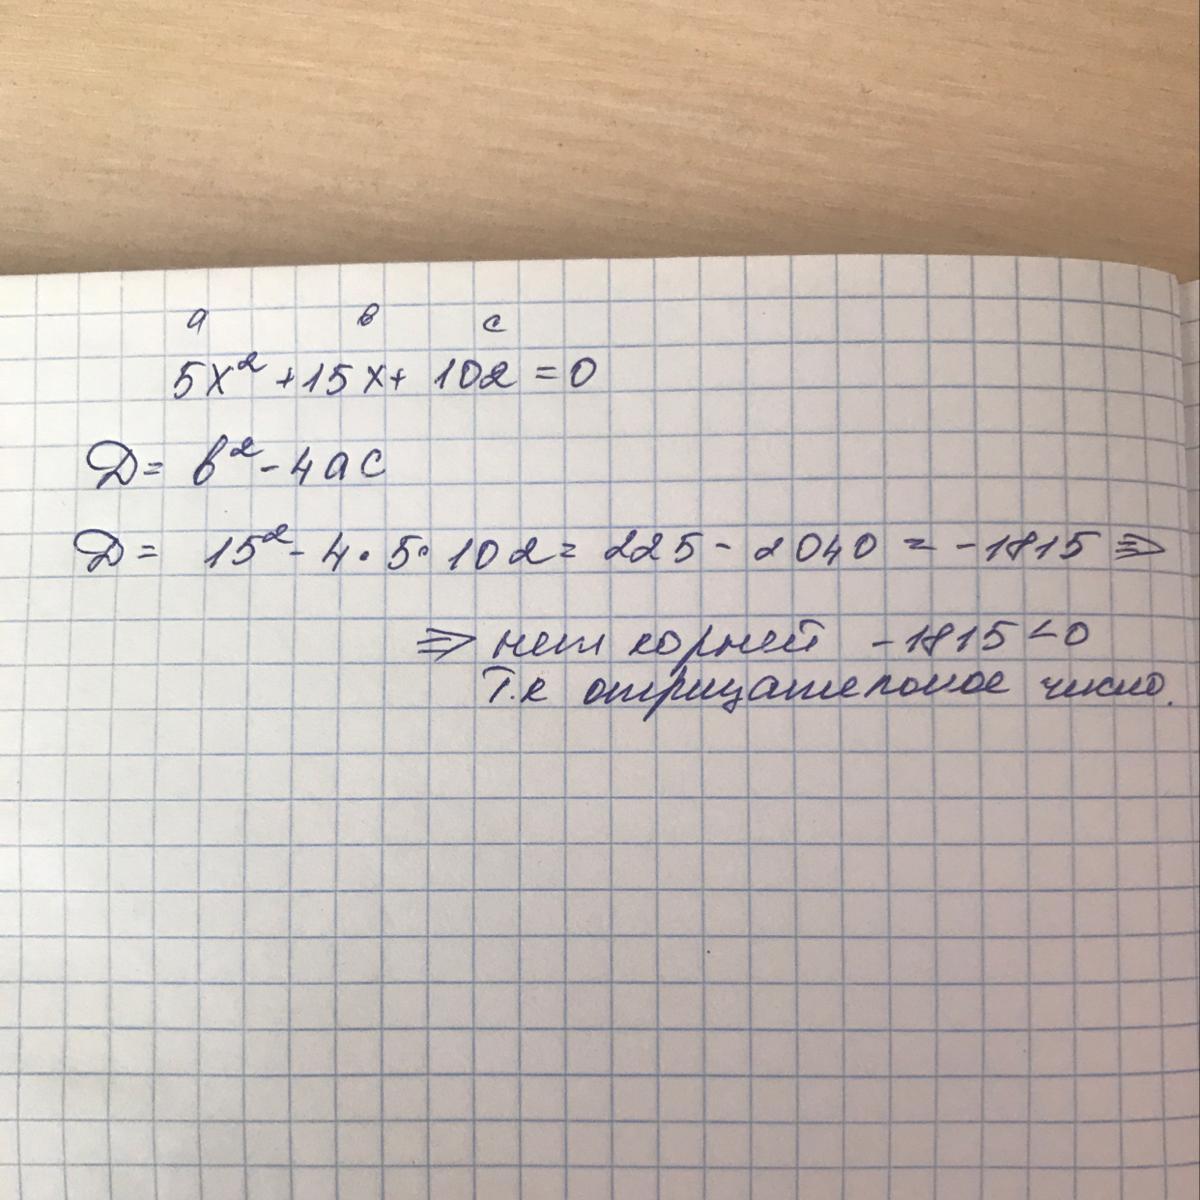 a в c
5x² + 15x + 102 = 0
D = b² - 4ac
D = 15² - 4 · 5 · 102 = 225 - 2040 = -1815 ⇒
⇒ нет корней -1815 < 0
Т.к отрицательное число.